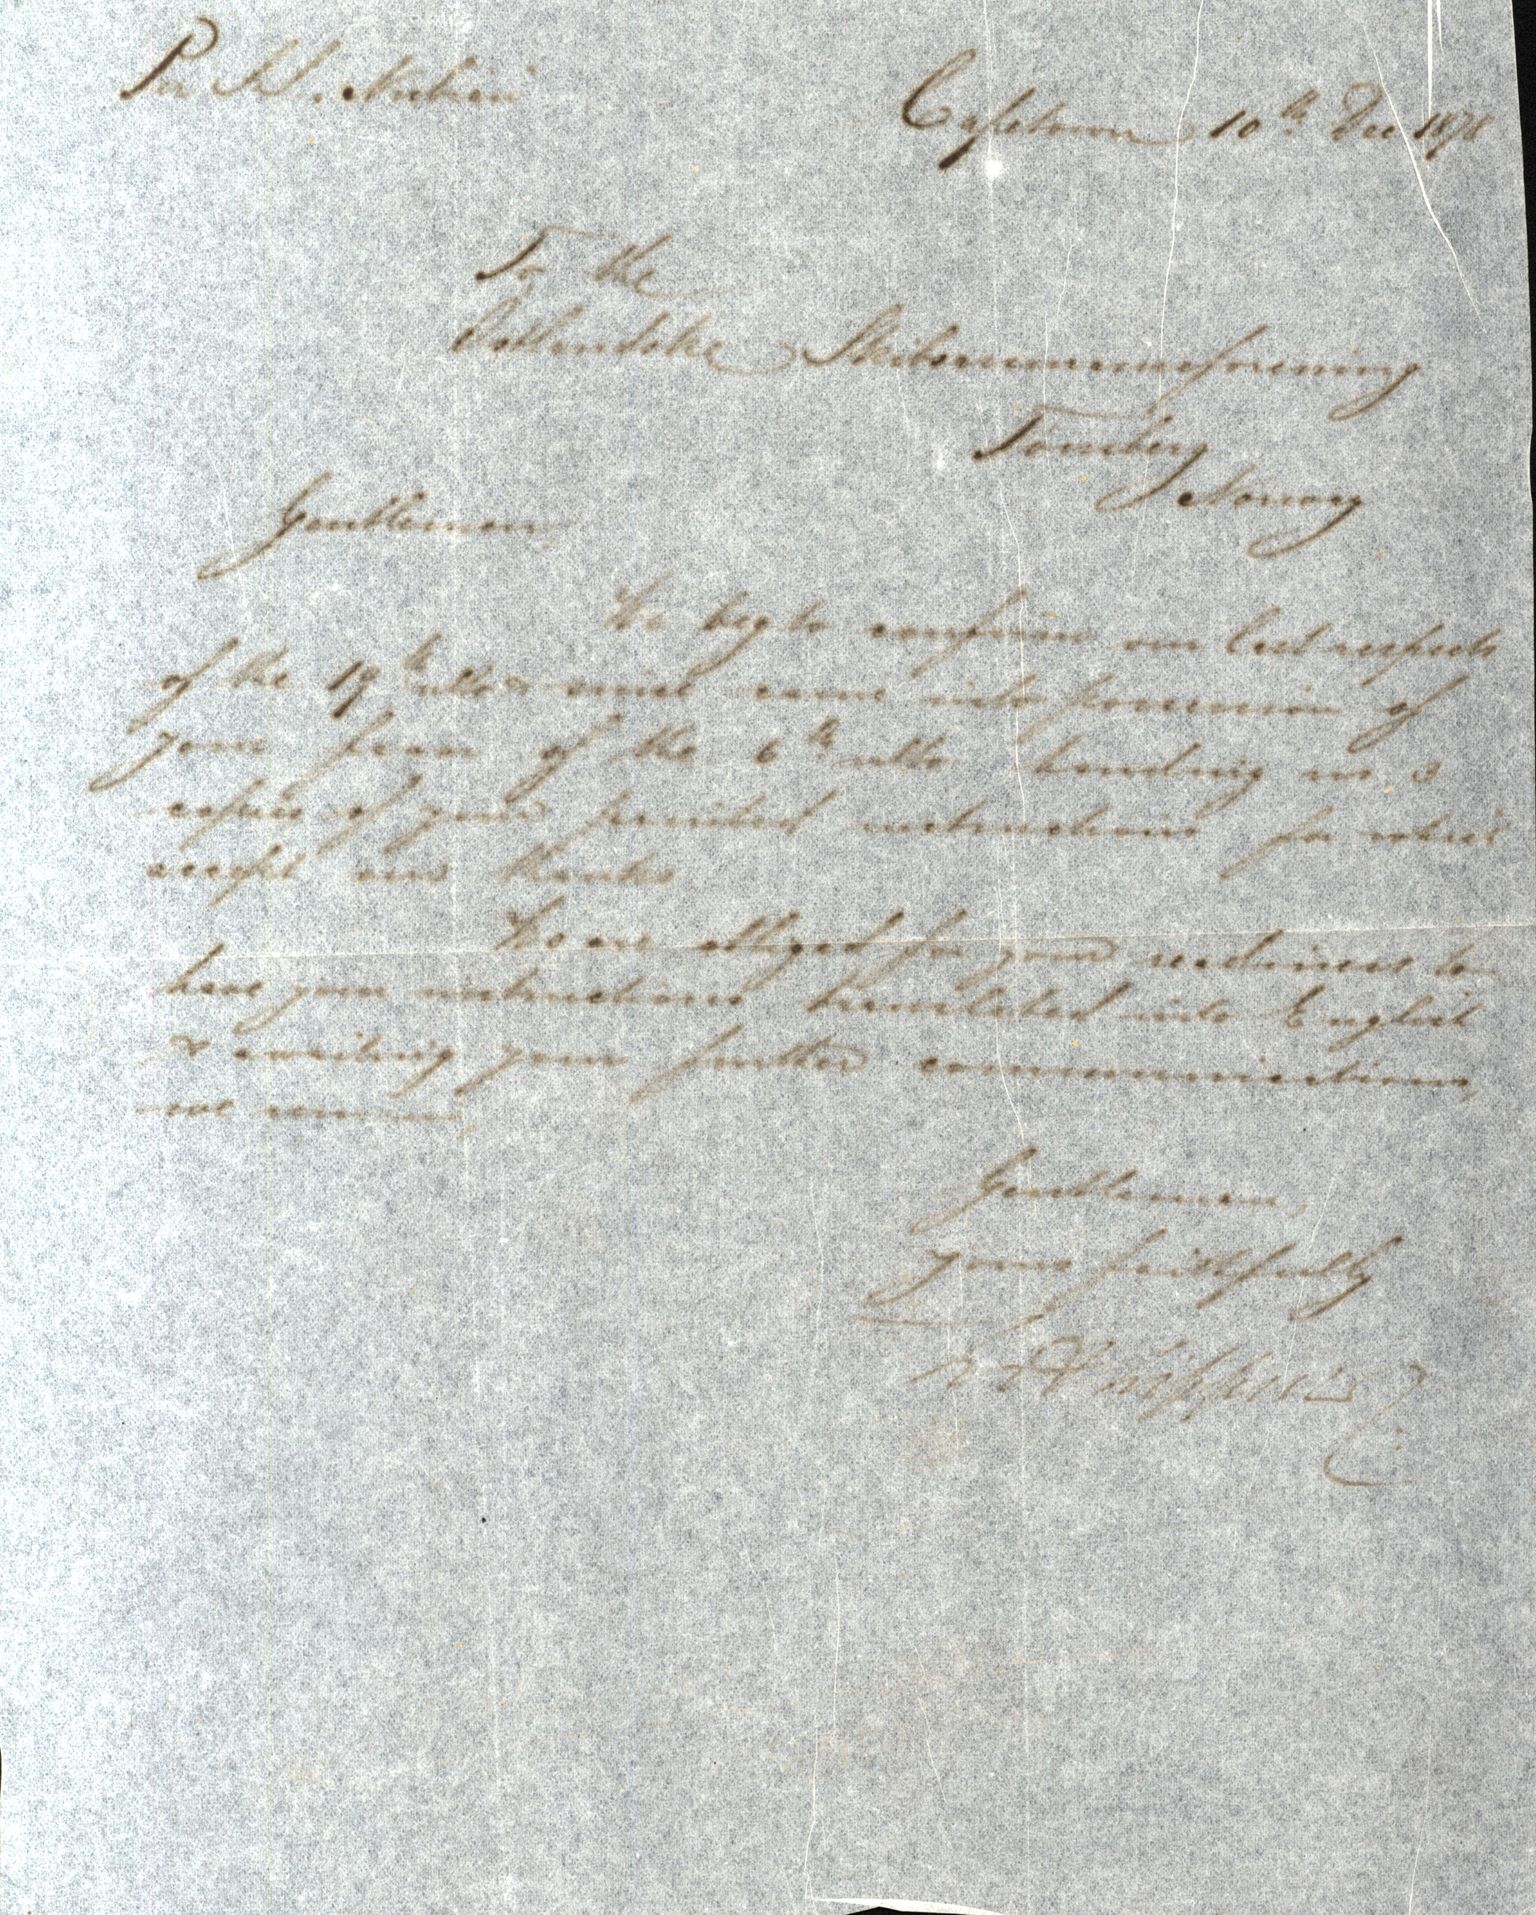 Per S.S. Nubian
Capetown 10th Dec 1878
To the
Østlandske Skibsassuranceforening
Tönsberg
Norway
Gentlemen,
We beg to confirm our last respects
of the 19th ulto & since came into possession of
your favor of the 6th ulto handing us 3
copies of your printed instructions for which
accept our thanks
We are obliged for your readiness to
have your instructions translated into English
& awaiting your further communications,
we remain,
Gentlemen,
yours faithfully